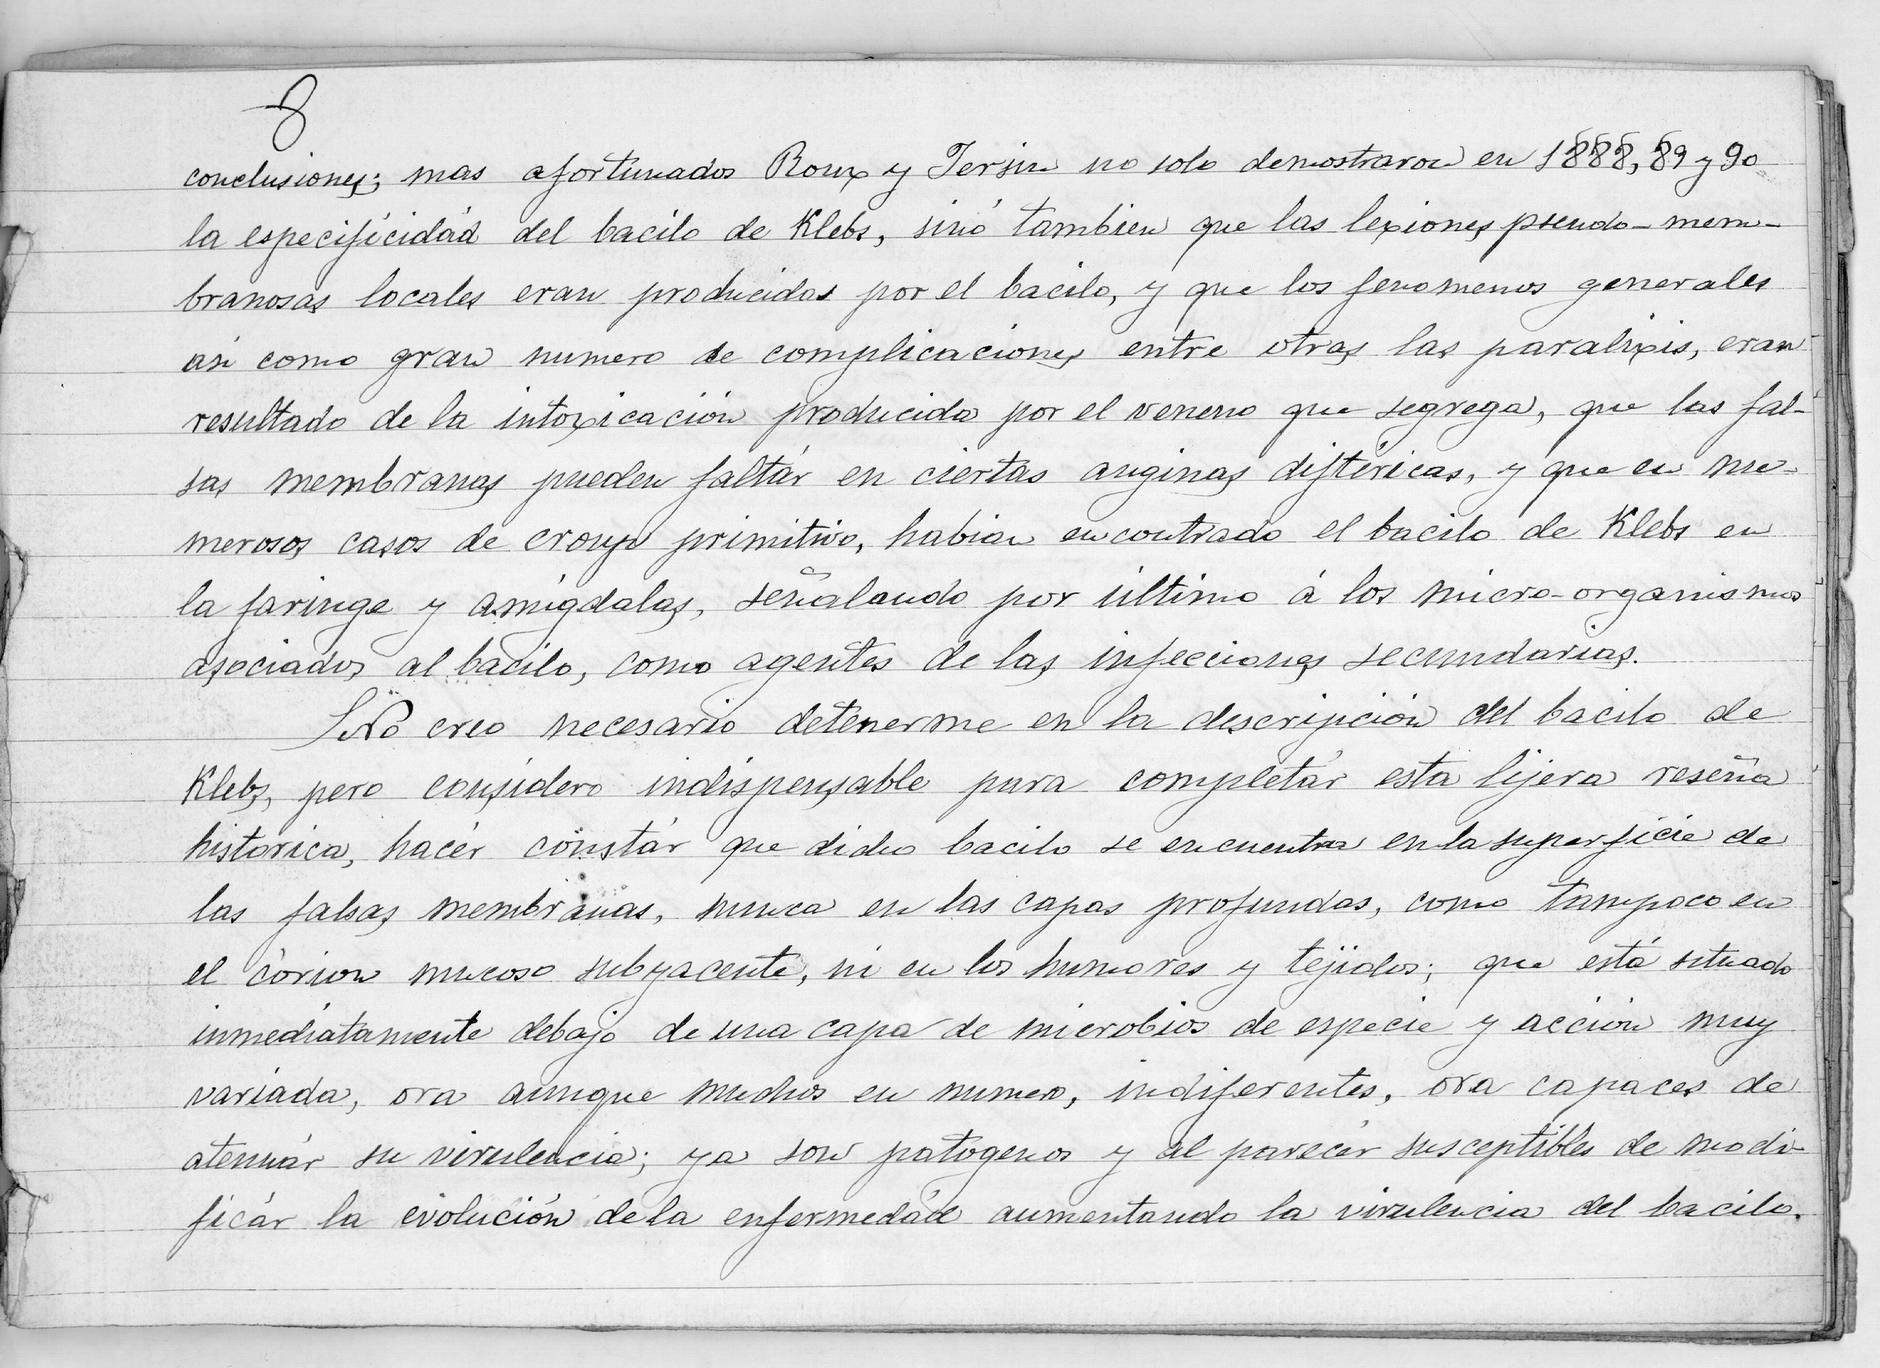 8
conclusiones; mas afortunados Roux y Jersin no solo demostraron en 1888, 89 y 90
la especificidád del bacilo de Klebs, sinó tambien que las lexiones pseudo-mem-
branosas locales eran producidas por el bacilo, y que los fenomenos generales
asi como gran numero de complicaciones entre otras las paralixis, eran
resultado de la intoxicación producida por el veneno que segrega, que las fal-
sas membranas pueden faltár en ciertas anginas diftéricas, y que en nu-
merosos casos de croup primitivo, habian encontrado el bacilo de Klebs en
la faringe y amígdalas, señalando por último á los micro-organismos
asociados al bacilo, como agentes de las infecciones secundarias.
No creo necesario detenerme en la descripción del bacilo de
Klebs, pero considero indispensable para completár esta lijera reseña
historica, hacér constár que dicho bacilo se encuentra en la superficie de
las falsas membranas, nunca en las capas profundas, como tampoco en
el córion mucoso subyacente, ni en los humores y tejidos; que está situado
inmediatamente debajo de una capa de microbios de especie y acción muy
variada, ora aunque muchos en numero, indiferentes, ora capaces de
atenuár su virulencia; ya son patogenos y al parecér susceptibles de modi-
ficár la evolución de la enfermedád aumentando la virulencia del bacilo.